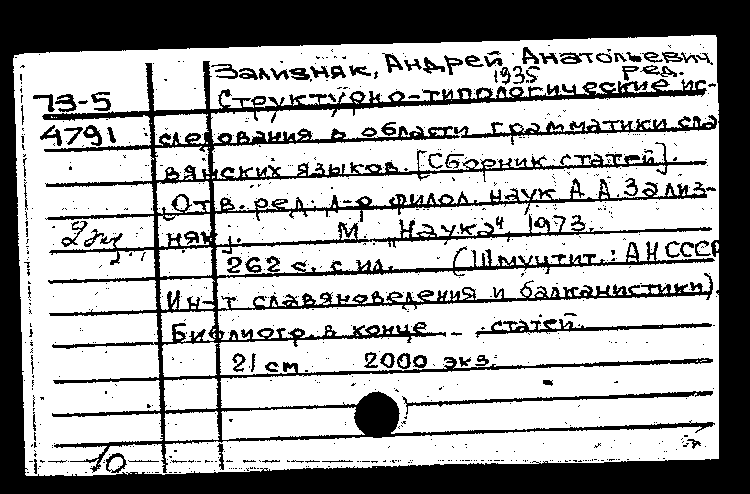 Зализняк, Андрей Анатольевич,
1935 ред.
73-5 Структурно-типологические ис-
4791 следования в области грамматики сла
вянских языков. [Сборник статей].
[Отв. ред. д-р филол. наук А. А. Зализ-
2 няк]. М., „Наука“, 1973.
262 с. с ил. (Шмуцтит.: АН СССР
Ин-т славяноведения и балканистики).
Библиогр. в конце статей.
21 см. 2000 экз.
10